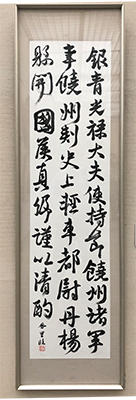 銀青光祿大夫使持節饒州諸軍
事饒州刺史上輕車都尉丹楊
縣開國侯真卿謹以清酌